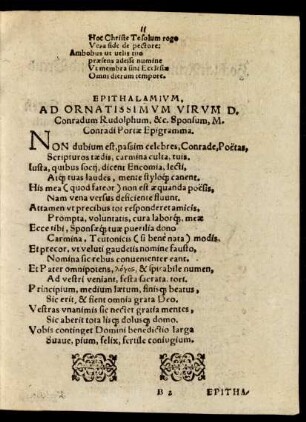 Hoc Christe Te solum rogo
Vera fide de pectore:
Ambobus ut velis tuo
præsens adesse numine
Vt membra sint Ecclesiæ
Omni dierum tempore.
EPITHALAMIVM,
AD ORNATISSIMUM VIRVM D.
Conradum Rudolphum, &c. Sponsum, M.
Conradi Portæ Epigramma.
NON dubium est, passim celebres, Conrade, Poëtas,
Scripturos tædis, carmina culta, tuis.
Iusta, quibus socij, dicent Encomia, lecti,
Atq; tuas laudes, mente styloq; canent.
His mea (quod fateor) non est æquanda poësis,
Nam vena versus deficiente fluunt.
Attamen ut precibus tot responderet amicis,
Prompta, voluntatis, cura laborq; meæ
Ecce tibi, Sponsæq; tuæ puerilia dono
Carmina, Teutonicis (si benè nata) modis.
Et precor, ut veluti gaudetis nomine fausto,
Nomina sic rebus convenienter eant.
Et Pater omnipotens, λόγος, & spirabile numen,
Ad vestri veniant, festa sacrata. tori.
Principium, medium lætum, finisq; beatus,
Sic erit, & fient omnia grata Deo.
Vestras unanimis sic nectet gratia mentes,
Sic aberit tota lisq; dolusq; domo.
Vobis continget Domini benedictio larga
Suave, pium, felix, fertile coniugium.
B 2 EPITHA-